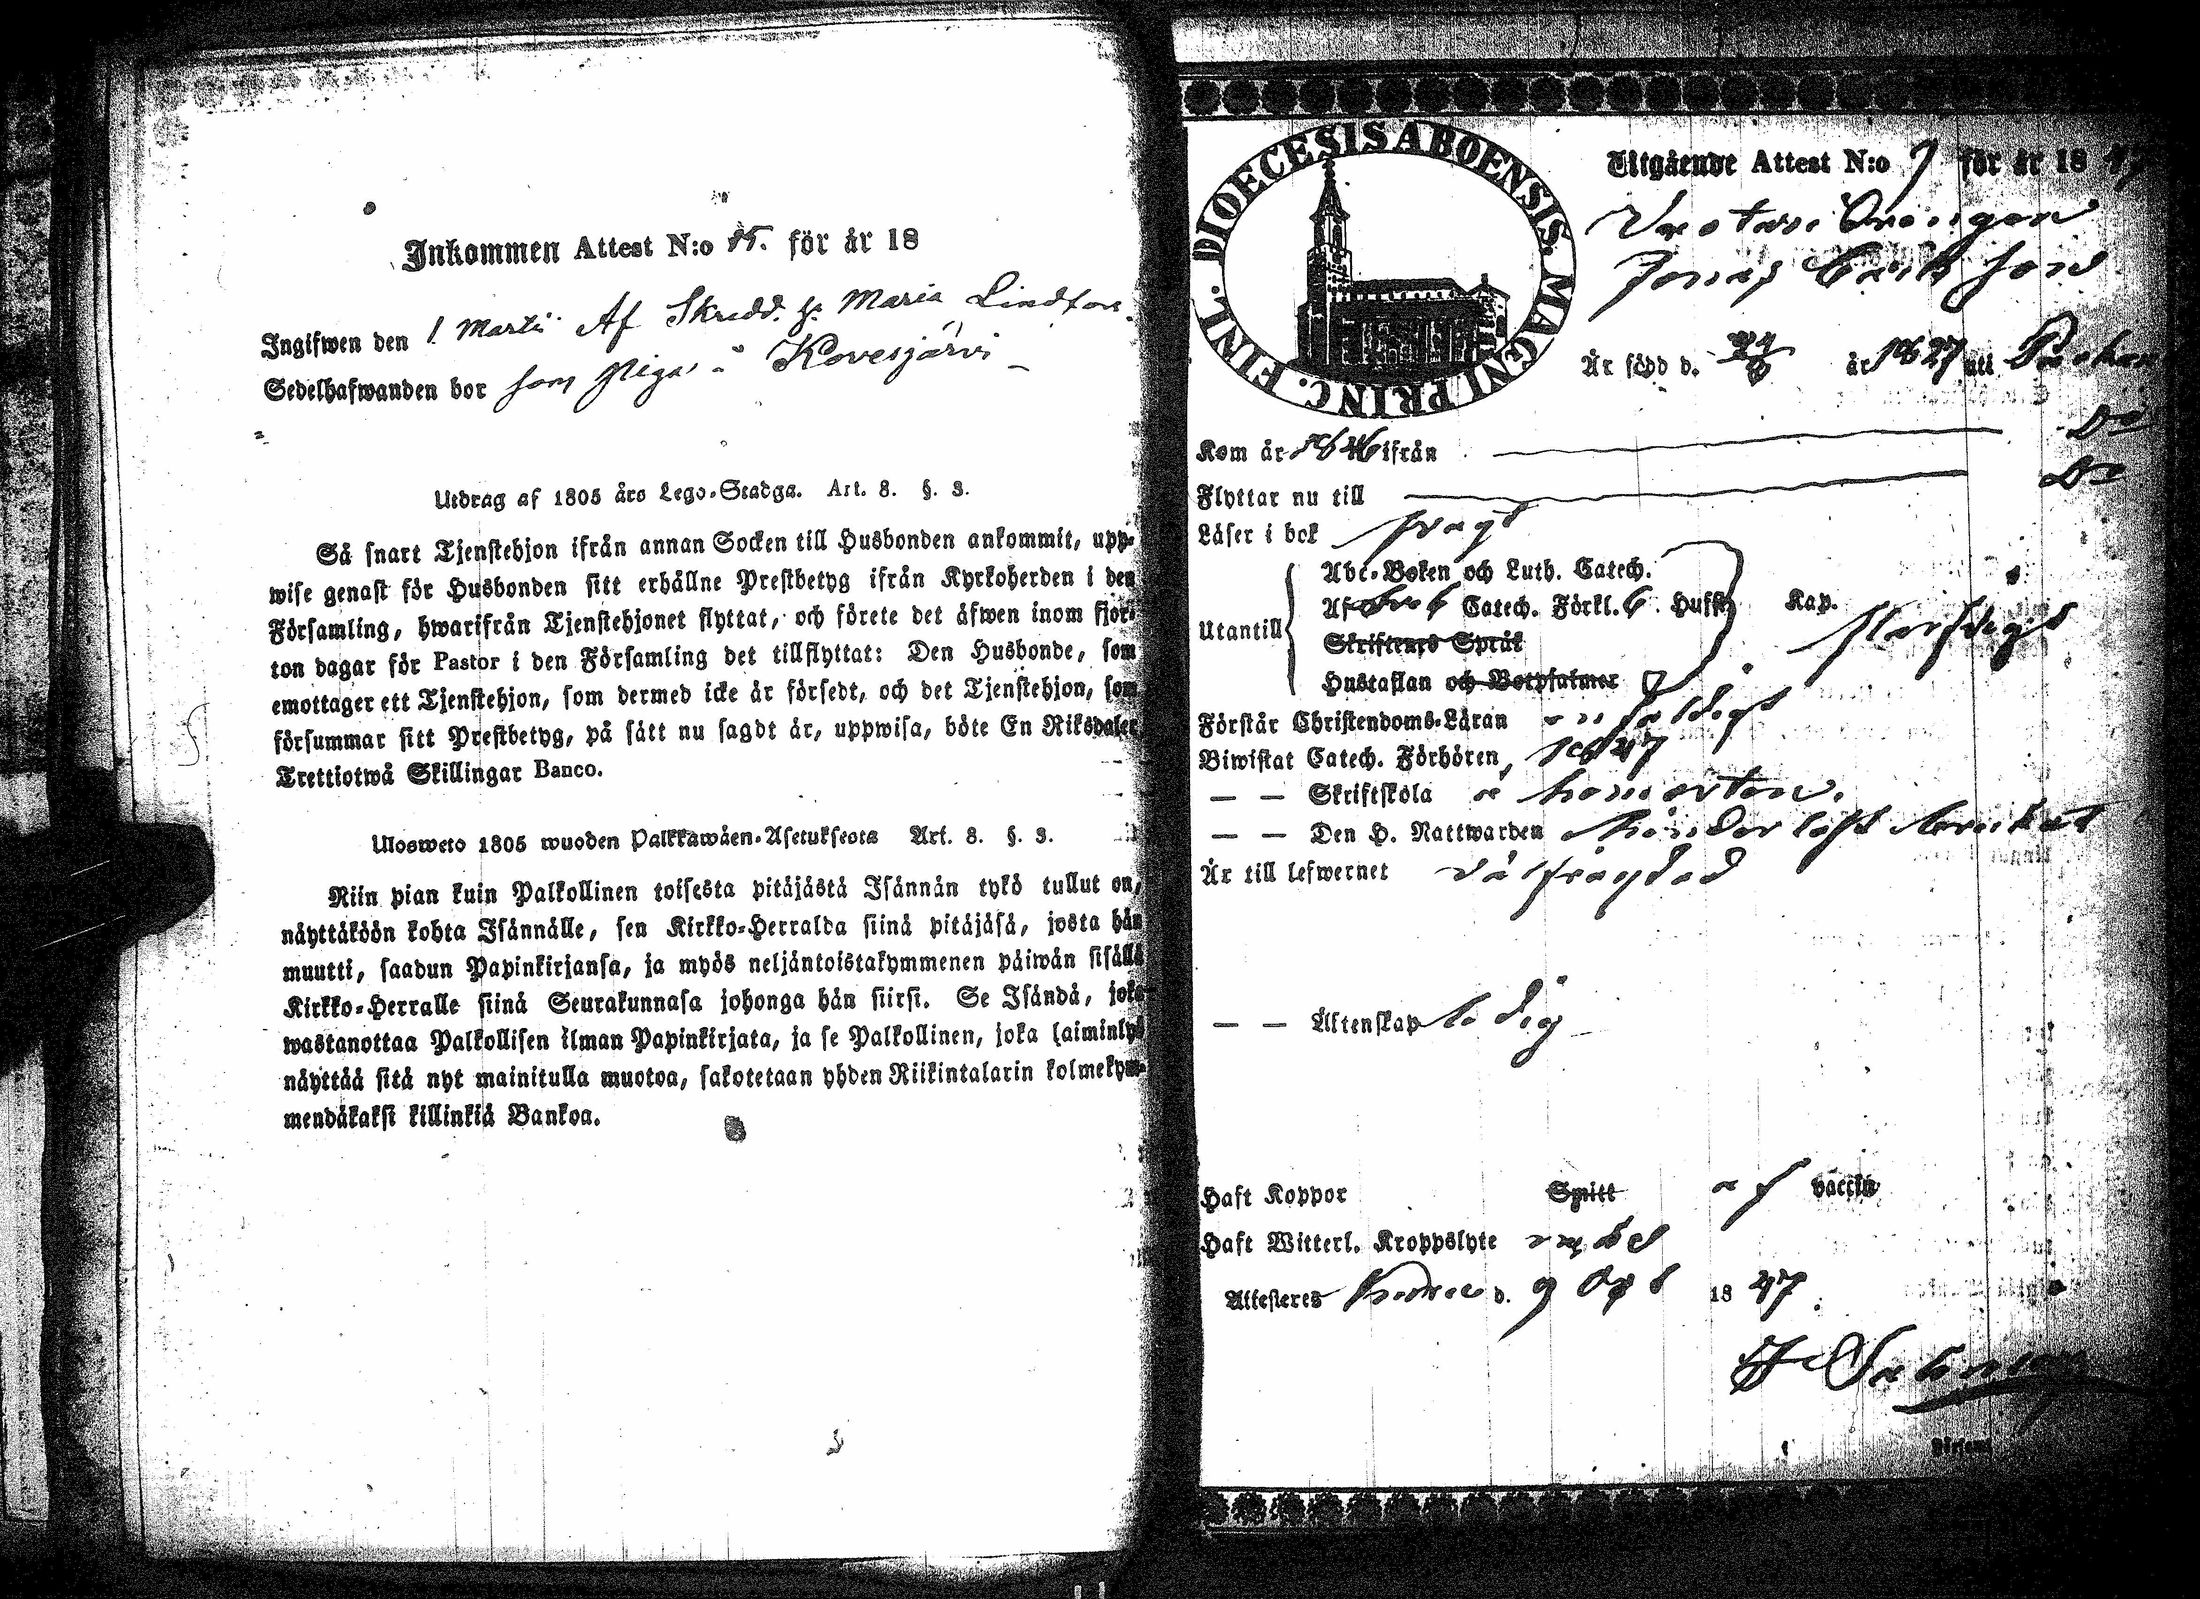 Inkommen Attest N:o 15. för år 18
Ingifwen den 1 Martii Af Skredd. h: Maria Lindfors.
Sedelhafwanden bor som Piga i Kovesjärvi
Utdrag af 1805 års Lego-Stadga. Art. 8. §. 3.
Så snart Tjenstehjon ifrån annan Socken till Husbonden ankommit, upp-
wise genast för Husbonden sitt erhållne Prestbetyg ifrån Kyrkoherden i den
Församling, hwarifrån Tjenstehjonet flyttat, och förete det äfwen inom fjor-
ton dagar för Pastor i den Församling det tillflyttat: Den Husbonde, som
emottager ett Tjenstehjon, som dermed icke är försedt, och det Tjenstehjon, som
försummar sitt Prestbetyg, på sätt nu sagdt är, uppwisa, böte En Riksdaler
Trettiotwå Skillingar Banco.
Ulosweto 1805 wuoden Palkkawäen-Asetuksesta Art. 8. §. 3.
Niin pian kuin Palkollinen toisesta pitäjästä Isännän tykö tullut on,
näyttäköön kohta Isännälle, sen Kirkko-Herralda siinä pitäjäsä, josta hän
muutti, saadun Papinkirjansa, ja myös neljäntoistakymmenen päiwän sisällä
Kirkko-Herralle siinä Seurakunnasa johonga hän siirsi. Se Isändä, joka
wastanottaa Palkollisen ilman Papinkirjata, ja se Palkollinen, joka laiminlyö
näyttää sitä nyt mainitulla muotoa, sakotetaan yhden Riikintalarin kolmekym-
mendäkaksi killinkiä Bankoa.
DIOECESIS ABOENSIS. MAGNI PRINC. FINL.
Utgående Attest N:o 7 för år 18 47
Jonas Eriksson
Är född d. år 1827 uti
Kom år 1846 ifrån Do
Flyttar nu till Do
Läser i bok svagt
Utantill
Abc-Boken och Luth. Catech.
Af Catech. Förkl. 6. Hufst. Kap.
Skriftenes Språk
Hustaflan och Botpsalmer
Förstår Christendoms-Läran enfaldigt
Biwistat Catech. Förhören 1847
— — Skriftskola
— — Den H. Nattwarden
Är till lefwernet välfrägdad
— — Äktenskap ledig
Haft Koppor Smitt af vaccin
Haft Witterl. Kroppslyte
Attesteres d. 9 Oct 18 47